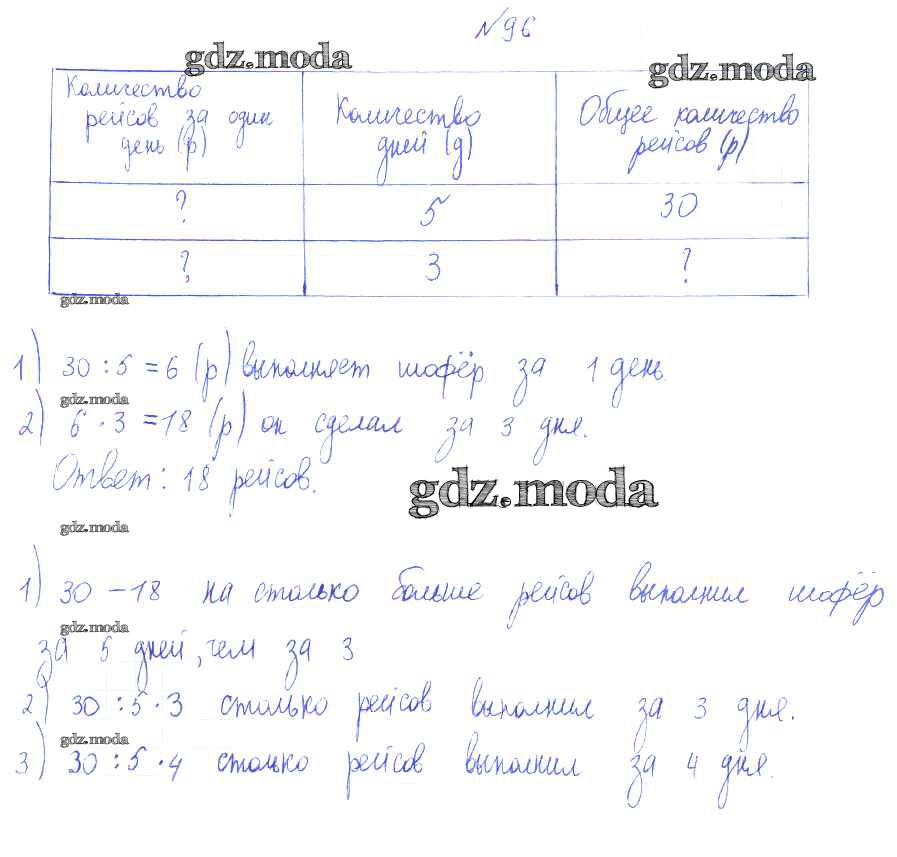 №96
gdz.moda
gdz.moda
Количество рейсов за один день (р)
Количество дней (д)
Общее количество рейсов (р)
? 5 30
? 3 ?
gdz.moda
1) 30 : 5 = 6 (р) выполняет шофёр за 1 день.
gdz.moda
2) 6 · 3 = 18 (р) он сделал за 3 дня.
Ответ: 18 рейсов.
gdz.moda
gdz.moda
1) 30 - 18 на столько больше рейсов выполнил шофёр
gdz.moda
за 5 дней, чем за 3
2) 30 : 5 · 3 столько рейсов выполнил за 3 дня.
gdz.moda
3) 30 : 5 · 4 столько рейсов выполнил за 4 дня.